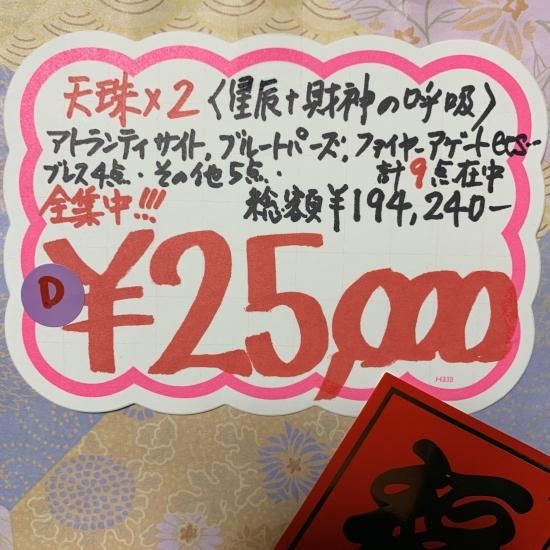 天珠×2〈星辰+財神の呼吸〉
アトランティサイト, ブルートパーズ, ファイヤーアゲートecs…
ブレス4点・その他5点・ 計9点在中
全集中!!! 総額¥194,240-
D ¥25,000
H338